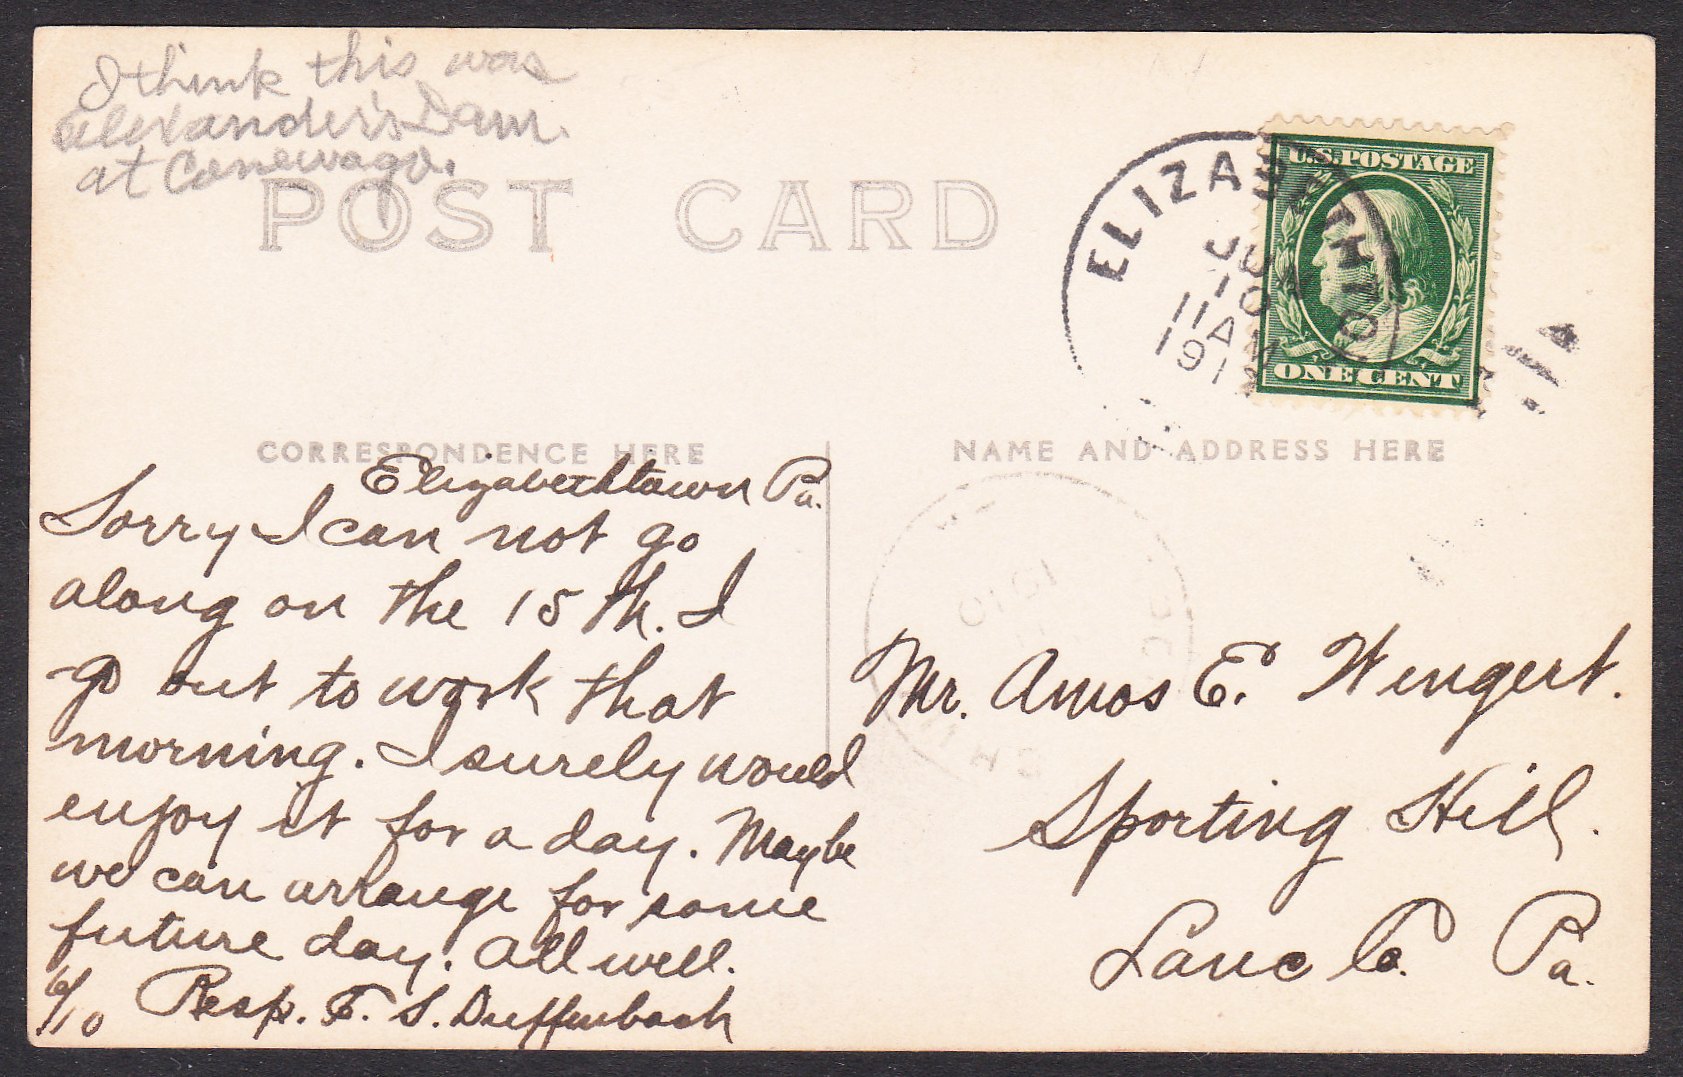 I think this was
Alexander's Dam
at Conewago.
POST CARD
ELIZABETHTO
JU
10
11 AM
191
U.S. POSTAGE
ONE CENT
CORRESPONDENCE HERE
NAME AND ADDRESS HERE
Elizabethtown Pa.
Sorry I can not go
along on the 15th. I
go out to work that
morning. I surely would
enjoy it for a day. Maybe
we can arrange for some
future day. All well.
6/10 Resp. F. S. Duffenbach
Mr. Amos E. Wengert.
Sporting Hill.
Lanc Co. Pa.